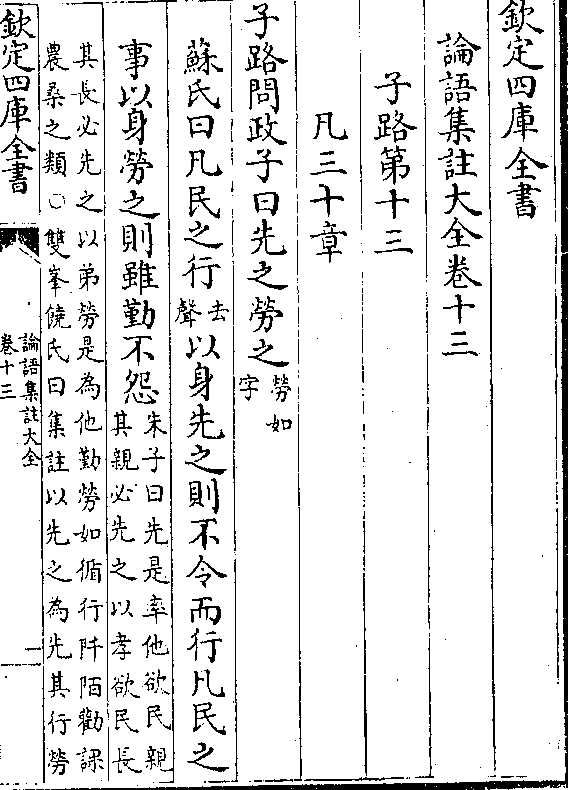 欽定四庫全書
論語集註大全卷十三
子路第十三
凡三十章
子路問政子曰先之勞之勞如
字
蘇氏曰凡民之行去
聲以身先之則不令而行凡民之
事以身勞之則雖勤不怨朱子曰先是率他欲民親
其親必先之以孝欲民長
其長必先之以弟勞是為他勤勞如循行阡陌勸課
農桑之類○雙峯饒氏曰集註以先之為先其行勞
欽定四庫全書
論語集註大全
卷十三
一